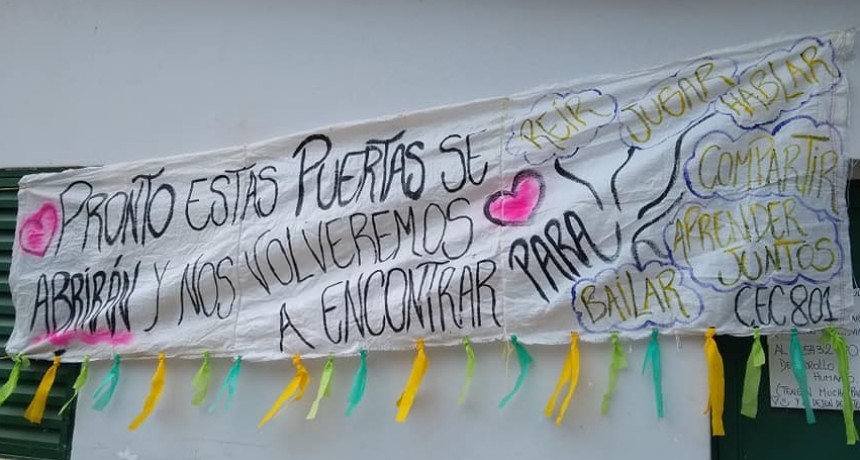 PRONTO ESTAS PUERTAS SE
ABRIRÁN Y NOS VOLVEREMOS
A ENCONTRAR PARA
REIR
JUGAR
HABLAR
COMPARTIR
APRENDER
JUNTOS
BAILAR
CEC 801
AL
DE
HUMANO
(TENEN MUCHA